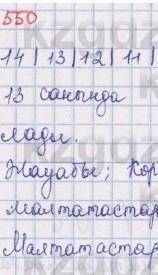 550
14 | 13 | 12 | 11 |
13 санында
лады.
Жауабы; Кор
малтатастар
Малтатастар